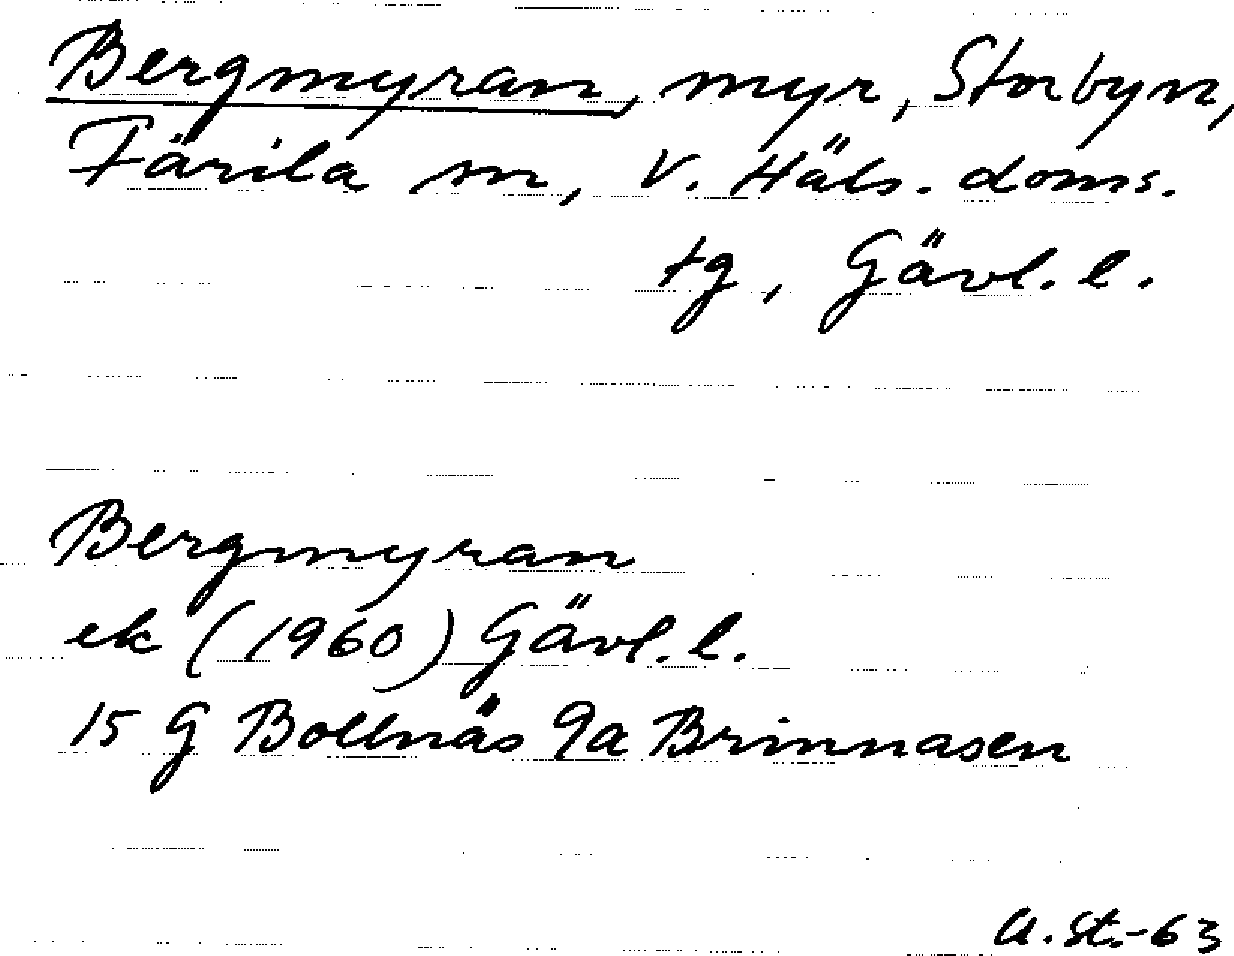 Bergmyran, myr, Storbyn,
Färila sn, V. Häls. doms.
tg, Gävl. l.
Bergmyran
ek (1960) Gävl. l.
15 G Bollnäs 9a Brinnåsen
A. St.-63